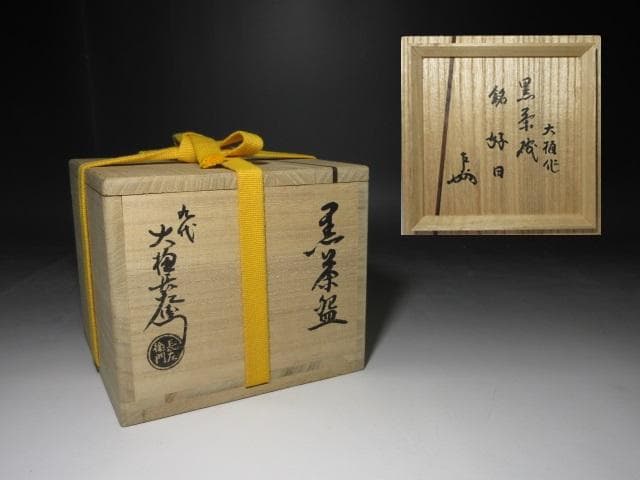 黒茶盌
九代
大樋長左衛門
長左
衛門
大樋作
黒茶碗
銘 好日